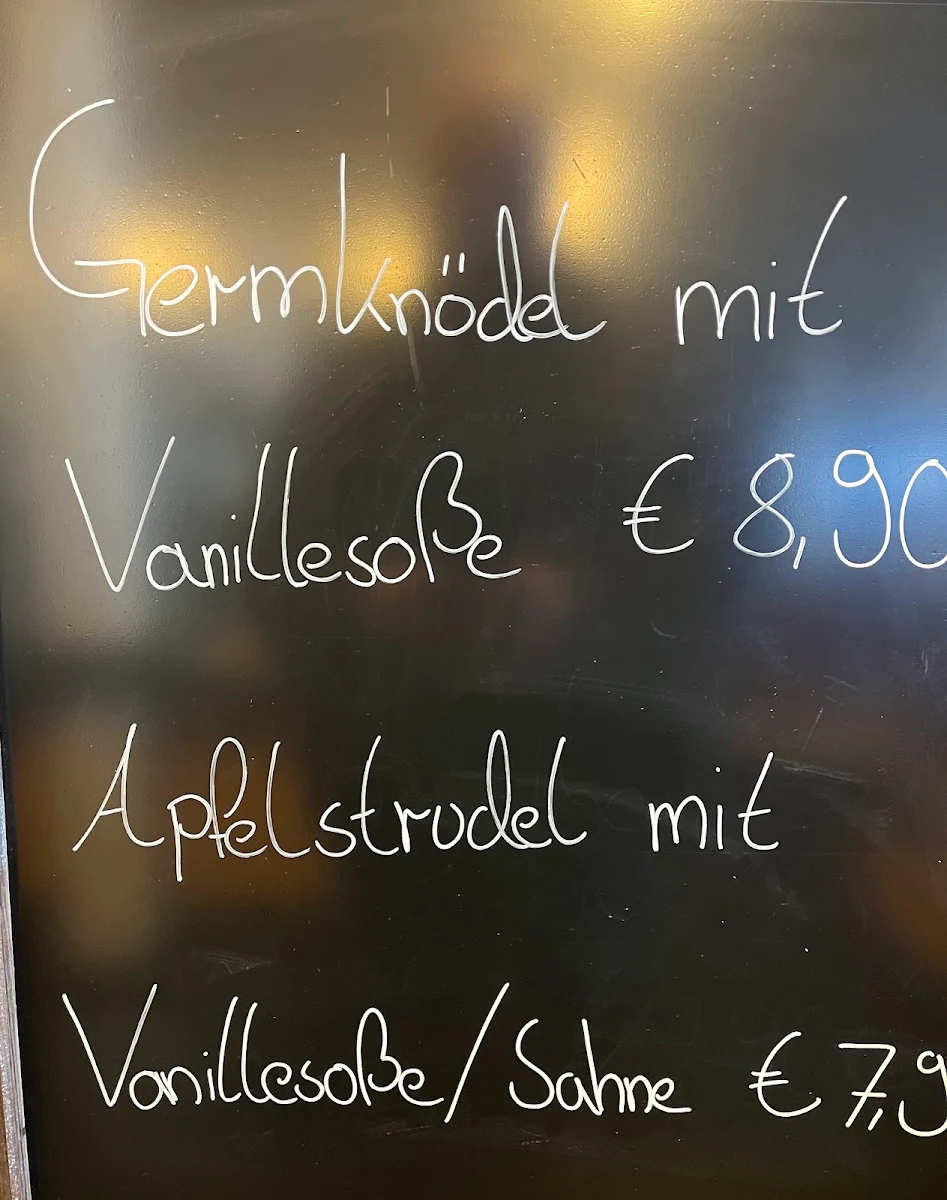 Germknödel mit
Vanillesoße € 8,90
Apfelstrudel mit
Vanillesoße/Sahne € 7,9